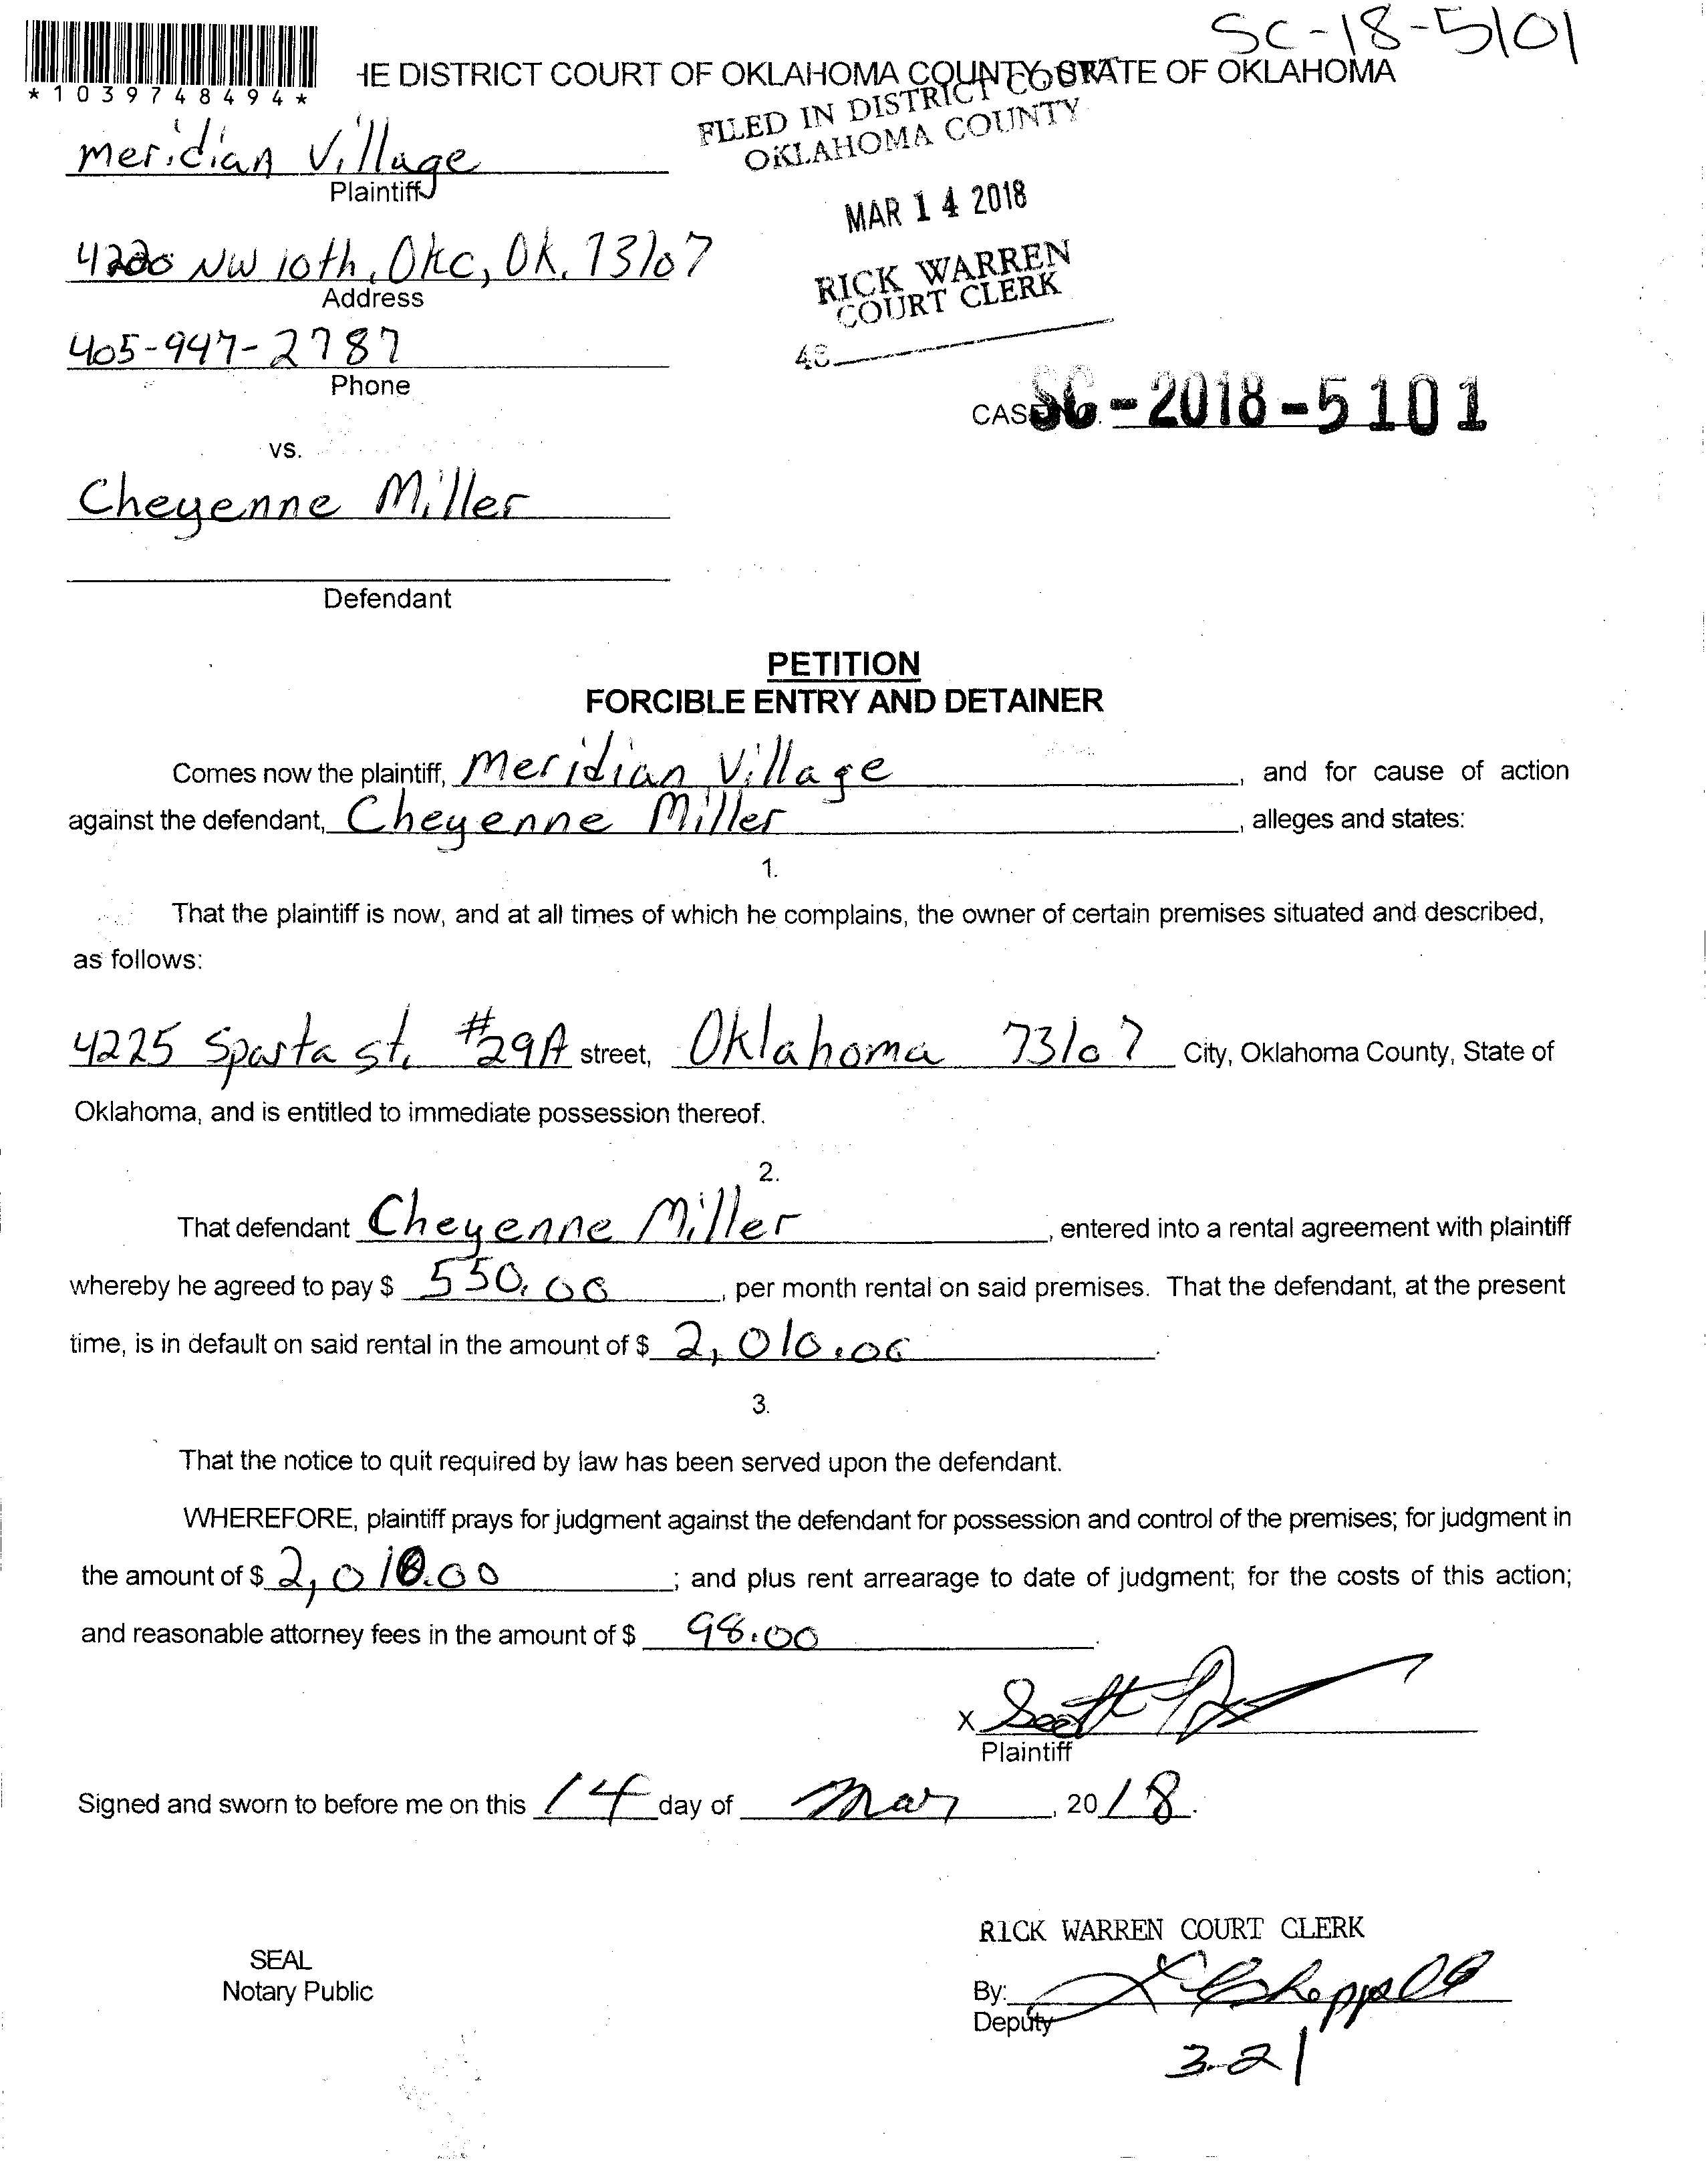 SC-18-5101
*1039748494*
HE DISTRICT COURT OF OKLAHOMA COUNTY, STATE OF OKLAHOMA
FILED IN DISTRICT COURT
OKLAHOMA COUNTY
meridian Village
Plaintiff
MAR 14 2018
4220 NW 10th, OKC, OK, 73107
Address
RICK WARREN
COURT CLERK
405-947-2787
Phone
CAS SC-2018-5101
vs.
Cheyenne Miller
Defendant
PETITION
FORCIBLE ENTRY AND DETAINER
Comes now the plaintiff, Meridian Village, and for cause of action
against the defendant, Cheyenne Miller, alleges and states:
1.
That the plaintiff is now, and at all times of which he complains, the owner of certain premises situated and described,
as follows:
4225 Sparta st. #29A street, Oklahoma 73107 City, Oklahoma County, State of
Oklahoma, and is entitled to immediate possession thereof.
2.
That defendant Cheyenne Miller, entered into a rental agreement with plaintiff
whereby he agreed to pay $ 550.00, per month rental on said premises. That the defendant, at the present
time, is in default on said rental in the amount of $ 2,010.00.
3.
That the notice to quit required by law has been served upon the defendant.
WHEREFORE, plaintiff prays for judgment against the defendant for possession and control of the premises; for judgment in
the amount of $ 2,010.00; and plus rent arrearage to date of judgment; for the costs of this action;
and reasonable attorney fees in the amount of $ 98.00.
X Scott
Plaintiff
Signed and sworn to before me on this 14 day of Mar, 2018.
RICK WARREN COURT CLERK
SEAL
Notary Public
By:
Deputy
3-21